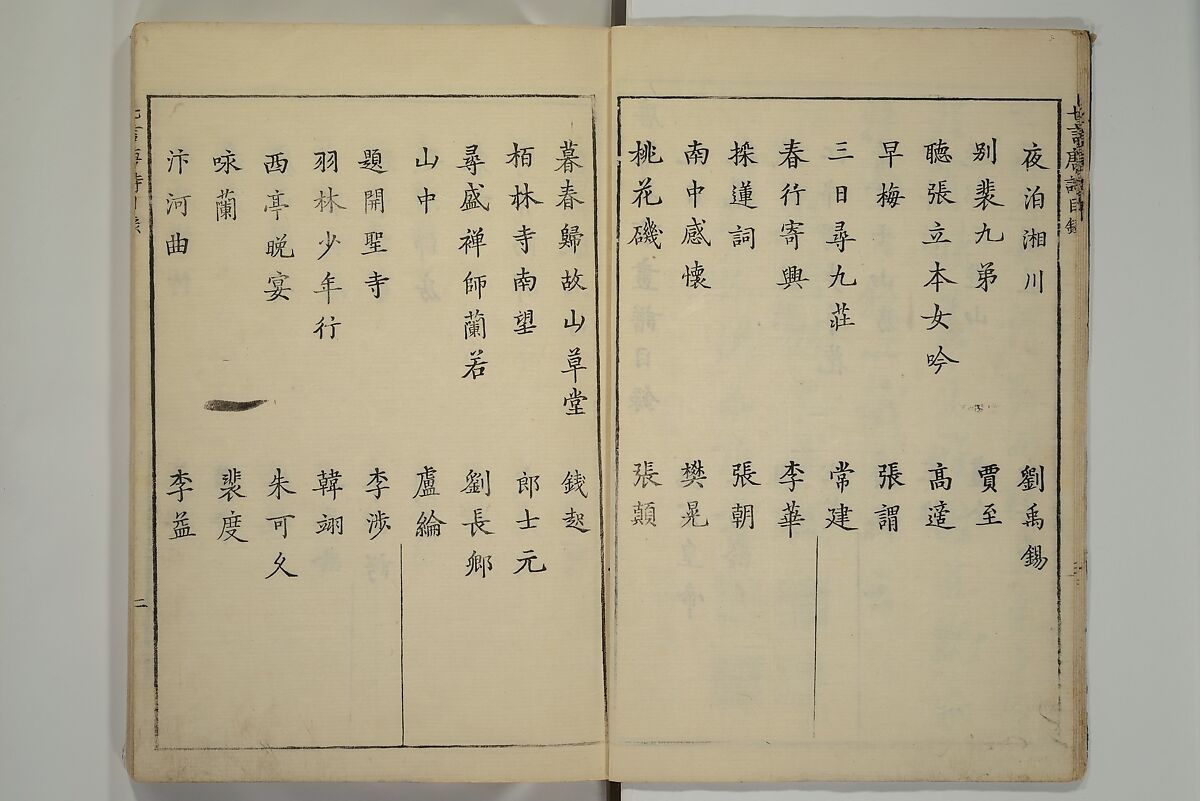 夜泊湘川 劉禹錫
別裴九弟 賈至
聽張立本女吟 高適
早梅 張謂
三日尋九莊 常建
春行寄興 李華
採蓮詞 張朝
南中感懷 樊晃
桃花磯 張顛
暮春歸故山草堂 錢起
栢林寺南望 郎士元
尋盛禅師蘭若 劉長卿
山中 盧綸
題開聖寺 李涉
羽林少年行 韓翊
西亭晚宴 朱可久
咏蘭 裴度
汴河曲 李益
二